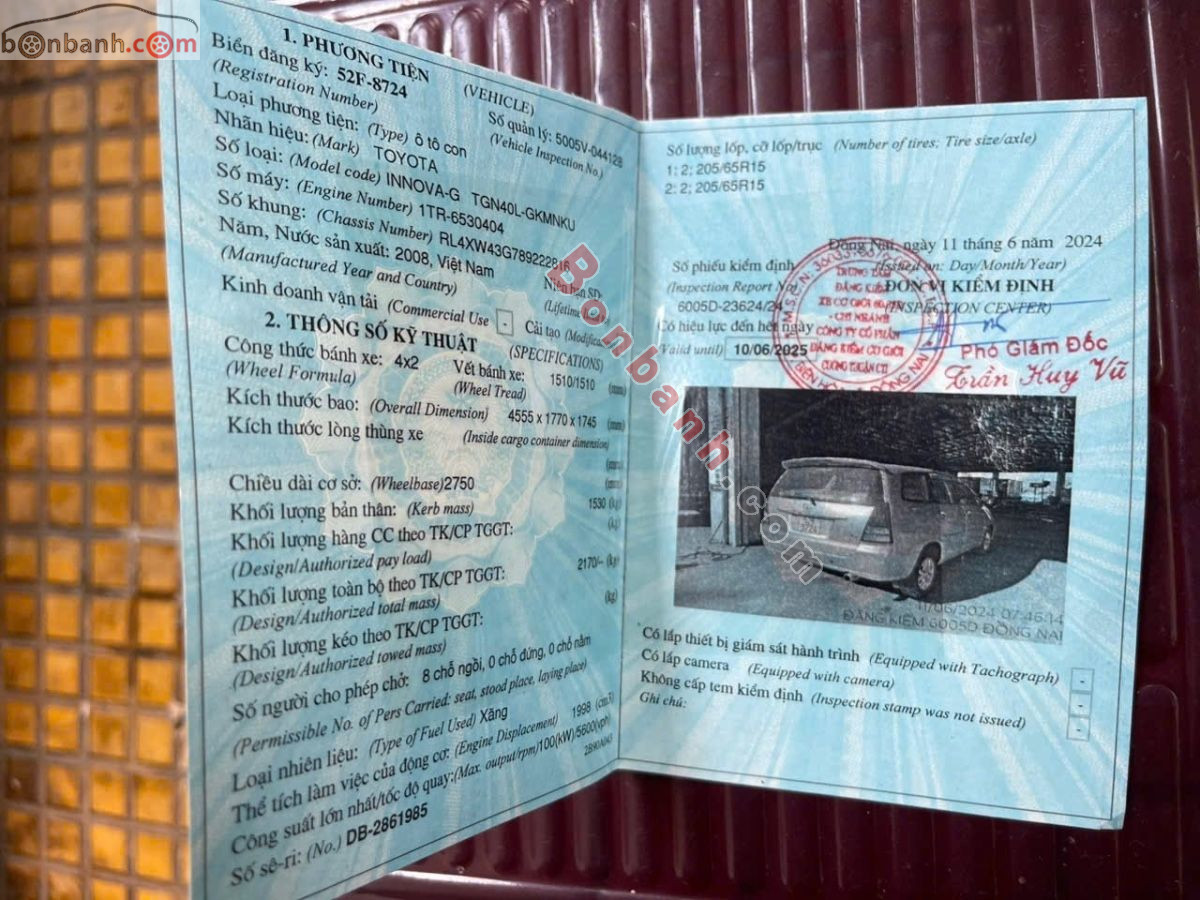 bonbanh.com
1. PHƯƠNG TIỆN (VEHICLE)
Biển đăng ký: 52F-8724
(Registration Number)
Số quản lý: 5005V-044128
(Vehicle Inspection No.)
Loại phương tiện: (Type) ô tô con
Nhãn hiệu: (Mark) TOYOTA
Số loại: (Model code) INNOVA-G TGN40L-GKMNKU
Số máy: (Engine Number) 1TR-6530404
Số khung: (Chassis Number) RL4XW43G789222816
Năm, Nước sản xuất: 2008, Việt Nam
(Manufactured Year and Country)
Niên hạn SD
(Lifetime
Kinh doanh vận tải (Commercial Use - Cải tạo (Modifica
2. THÔNG SỐ KỸ THUẬT (SPECIFICATIONS)
Công thức bánh xe: 4x2
(Wheel Formula)
Vết bánh xe: 1510/1510 (mm)
(Wheel Tread)
Kích thước bao: (Overall Dimension) 4555 x 1770 x 1745 (mm)
Kích thước lòng thùng xe (Inside cargo container dimension)
(mm)
Chiều dài cơ sở: (Wheelbase)2750 (mm)
Khối lượng bản thân: (Kerb mass) 1530 (kg)
Khối lượng hàng CC theo TK/CP TGGT: (kg)
(Design/Authorized pay load)
Khối lượng toàn bộ theo TK/CP TGGT: 2170/-- (kg)
(Design/Authorized total mass)
Khối lượng kéo theo TK/CP TGGT: (kg)
(Design/Authorized towed mass)
Số người cho phép chở: 8 chỗ ngồi, 0 chỗ đứng, 0 chỗ nằm
(Permissible No. of Pers Carried: seat, stood place, laying place)
Loại nhiên liệu: (Type of Fuel Used) Xăng
Thể tích làm việc của động cơ: (Engine Displacement) 1998 (cm3)
Công suất lớn nhất/tốc độ quay:(Max. output/rpm)100(kW)/5600(vph)
Số sê-ri: (No.) DB-2861985
Số lượng lốp, cỡ lốp/trục (Number of tires: Tire size/axle)
1: 2; 205/65R15
2: 2; 205/65R15
Đồng Nai, ngày 11 tháng 6 năm 2024
(Issued on: Day/Month/Year)
Số phiếu kiểm định
(Inspection Report No
6005D-23624/24
ĐƠN VỊ KIỂM ĐỊNH
(INSPECTION CENTER)
Có hiệu lực đến hết ngày
(Valid until) 10/06/2025
TRUNG TÂM
ĐĂNG KIỂM
XE CƠ GIỚI
- CHI NHÁNH
CÔNG TY CỔ PHẦN
ĐĂNG KIỂM CƠ GIỚI
Phó Giám Đốc
Trần Huy Vũ
Bonbanh.com
11/06/2024 07:46:14
ĐĂNG KIỂM 6005D ĐỒNG NAI
Có lắp thiết bị giám sát hành trình (Equipped with Tachograph) -
Có lắp camera (Equipped with camera) -
Không cấp tem kiểm định (Inspection stamp was not issued) -
Ghi chú: